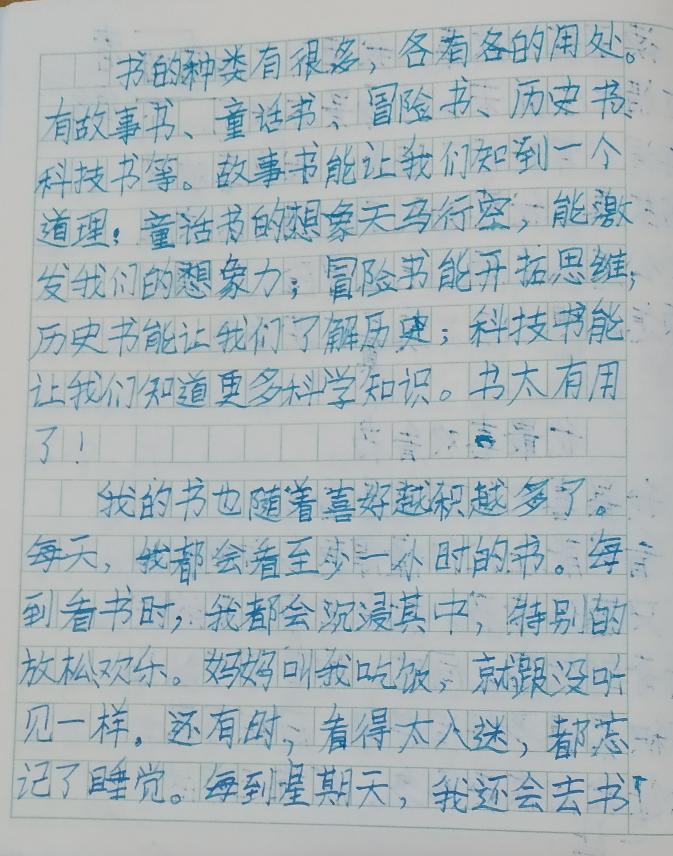 书的种类有很多，各有各的用处。
有故事书、童话书、冒险书、历史书、
科技书等。故事书能让我们知到一个
道理；童话书的想象天马行空，能激
发我们的想象力；冒险书能开拓思维；
历史书能让我们了解历史；科技书能
让我们知道更多科学知识。书太有用
了！
我的书也随着喜好越积越多了。
每天，我都会看至少一小时的书。每
到看书时，我都会沉浸其中，特别的
放松欢乐。妈妈叫我吃饭，就跟没听
见一样。还有时，看得太入迷，都忘
记了睡觉。每到星期天，我还会去书